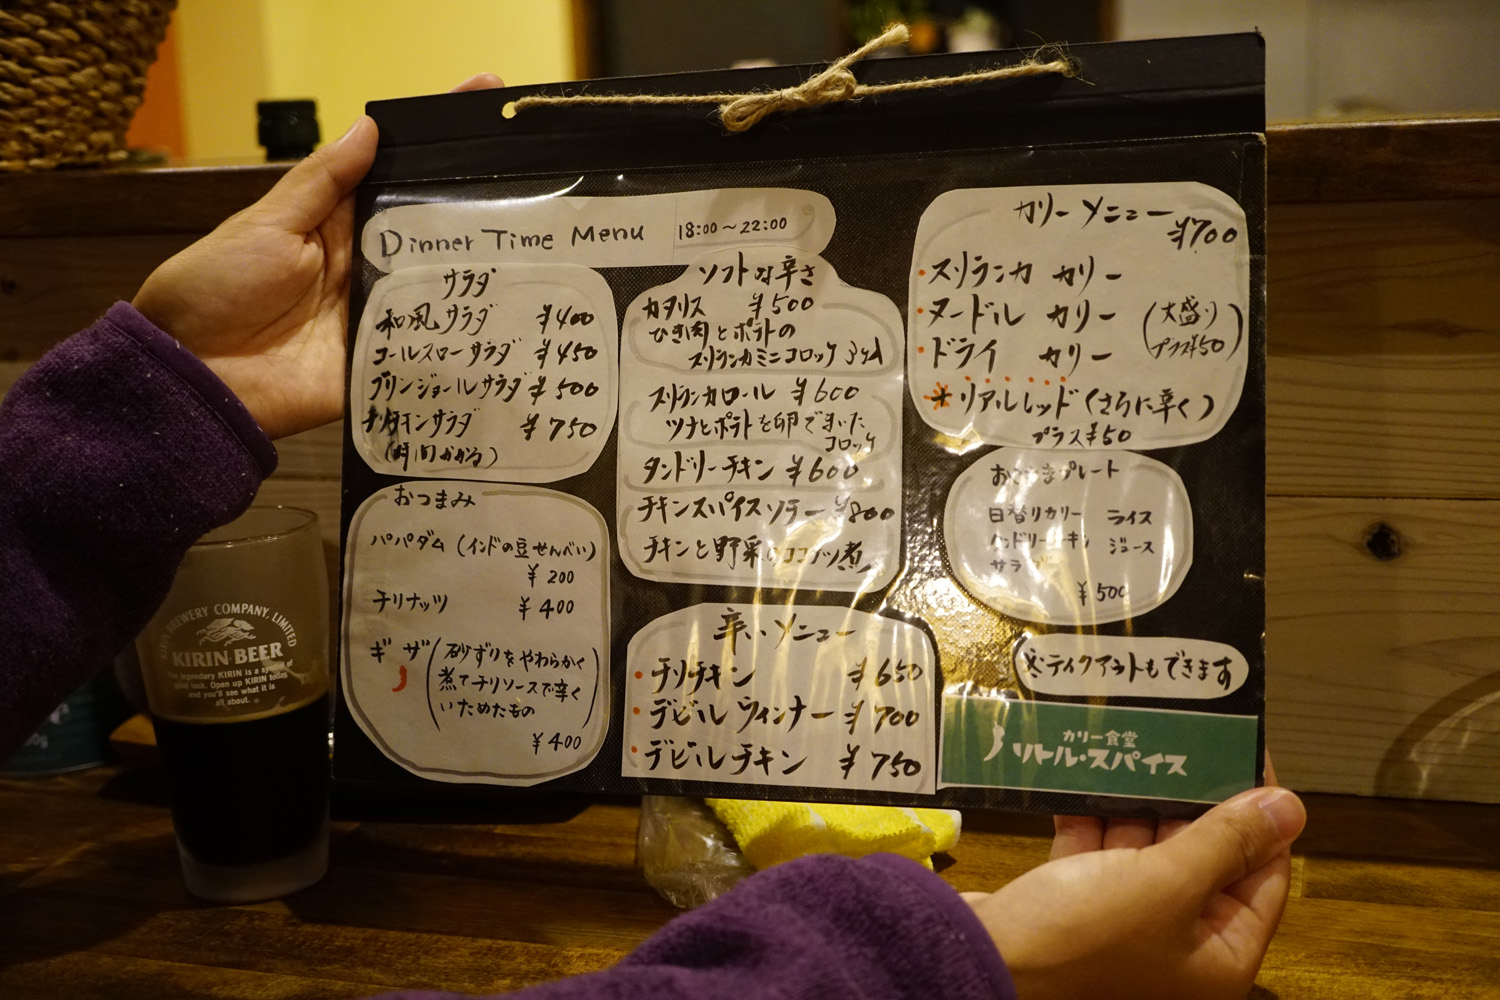 Dinner Time Menu 18:00~22:00
サラダ
和風サラダ ¥400
コールスローサラダ ¥450
ブリンジョールサラダ ¥500
チキンサラダ ¥750
(時間かかる)
おつまみ
パパダム (インドの豆せんべい)
¥200
チリナッツ ¥400
ギザ (砂ずりをやわらかく
煮てチリソースで辛く
いためたもの
¥400
ソフトな辛さ
カタリス ¥500
ひき肉とポテトの
スリランカミニコロッケ 3ケ入
スリランカロール ¥600
ツナとポテトを卵でまいた
コロッケ
タンドリーチキン ¥600
チキンスパイスソテー ¥800
チキンと野菜のココナッツ煮
辛いメニュー
・チリチキン ¥650
・デビルウィンナー ¥700
・デビルチキン ¥750
カリーメニュー
¥700
・スリランカ カリー
・ヌードル カリー
・ドライ カリー
(大盛り
プラス¥50)
*リアルレッド(さらに辛く)
プラス¥50
おこさまプレート
日替りカリー ライス
タンドリーチキン ジュース
サラダ
¥500
※テイクアウトもできます
カリー食堂
リトル・スパイス
KIRIN BREWERY COMPANY, LIMITED
KIRIN BEER
The legendary KIRIN is a symbol of
good luck. Open up KIRIN today,
and you'll see what it is
all about.